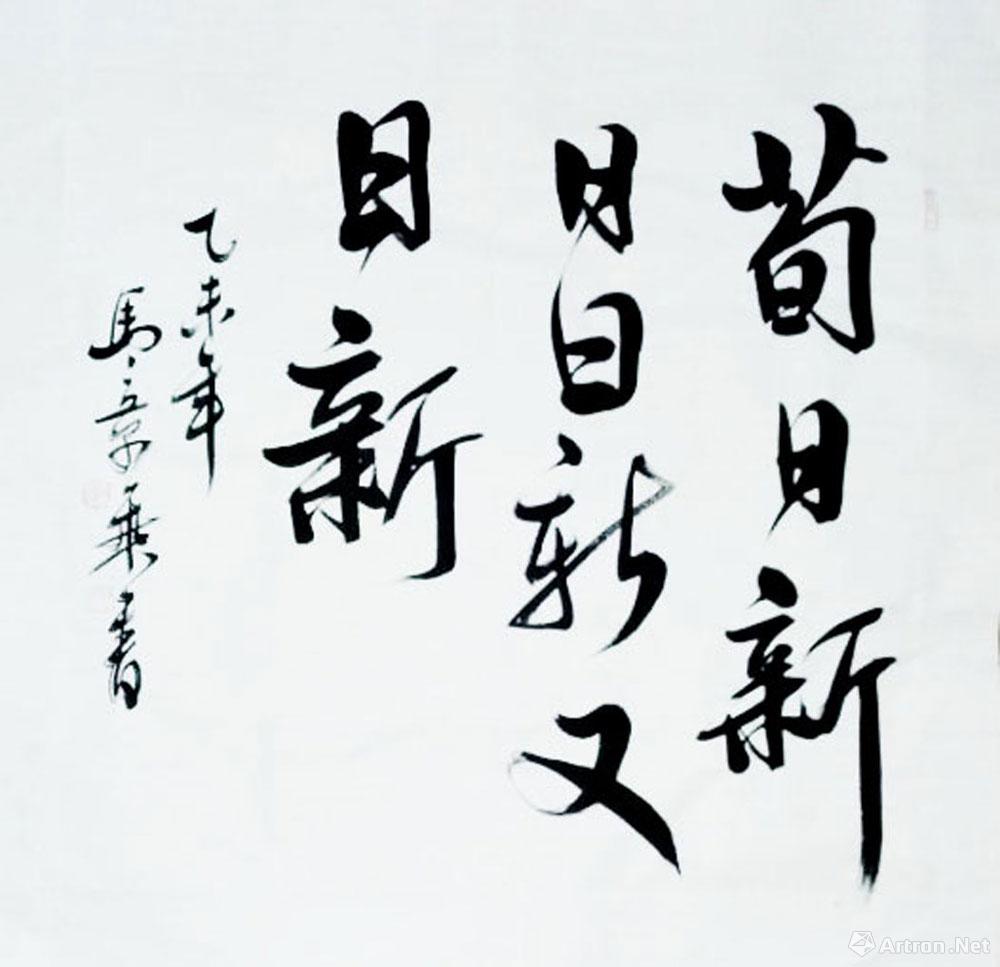 荀日新
日日新又
日新
乙未年
馬 書
Artron.Net